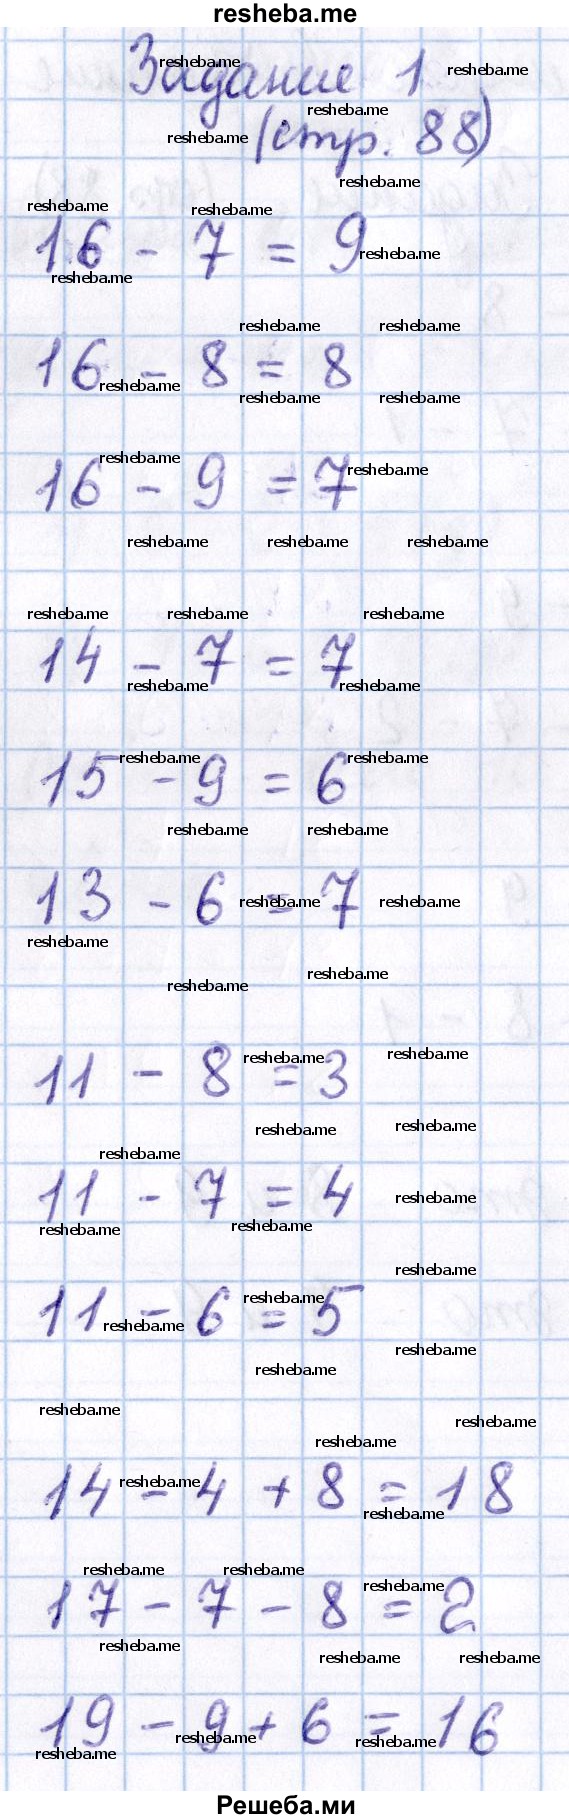 resheba.me
Задание 1
(стр. 88)
16 - 7 = 9
16 - 8 = 8
16 - 9 = 7
14 - 7 = 7
15 - 9 = 6
13 - 6 = 7
11 - 8 = 3
11 - 7 = 4
11 - 6 = 5
14 - 4 + 8 = 18
17 - 7 - 8 = 2
19 - 9 + 6 = 16
Решеба.ми